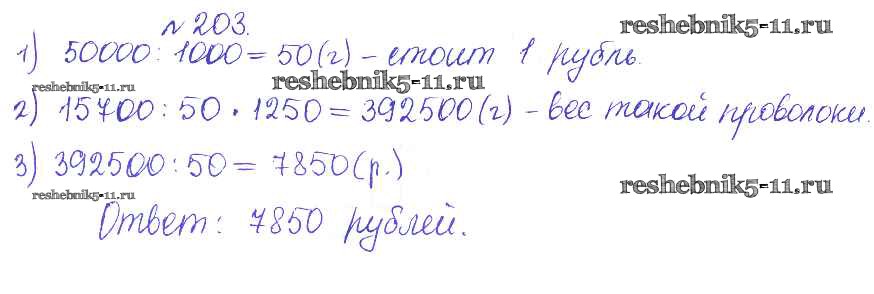 № 203.
reshebnik5-11.ru
1) 50000 : 1000 = 50 (г) – стоит 1 рубль.
reshebnik5-11.ru
reshebnik5-11.ru
2) 15700 : 50 · 1250 = 392500 (г) – вес такой проволоки.
3) 392500 : 50 = 7850 (р.)
reshebnik5-11.ru
reshebnik5-11.ru
Ответ: 7850 рублей.